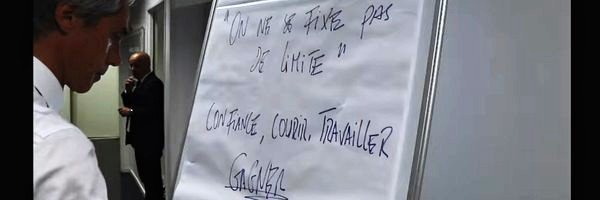 "ON NE SE FIXE PAS
DE LIMITE"
CONFIANCE, COURIR, TRAVAILLER
GAGNER